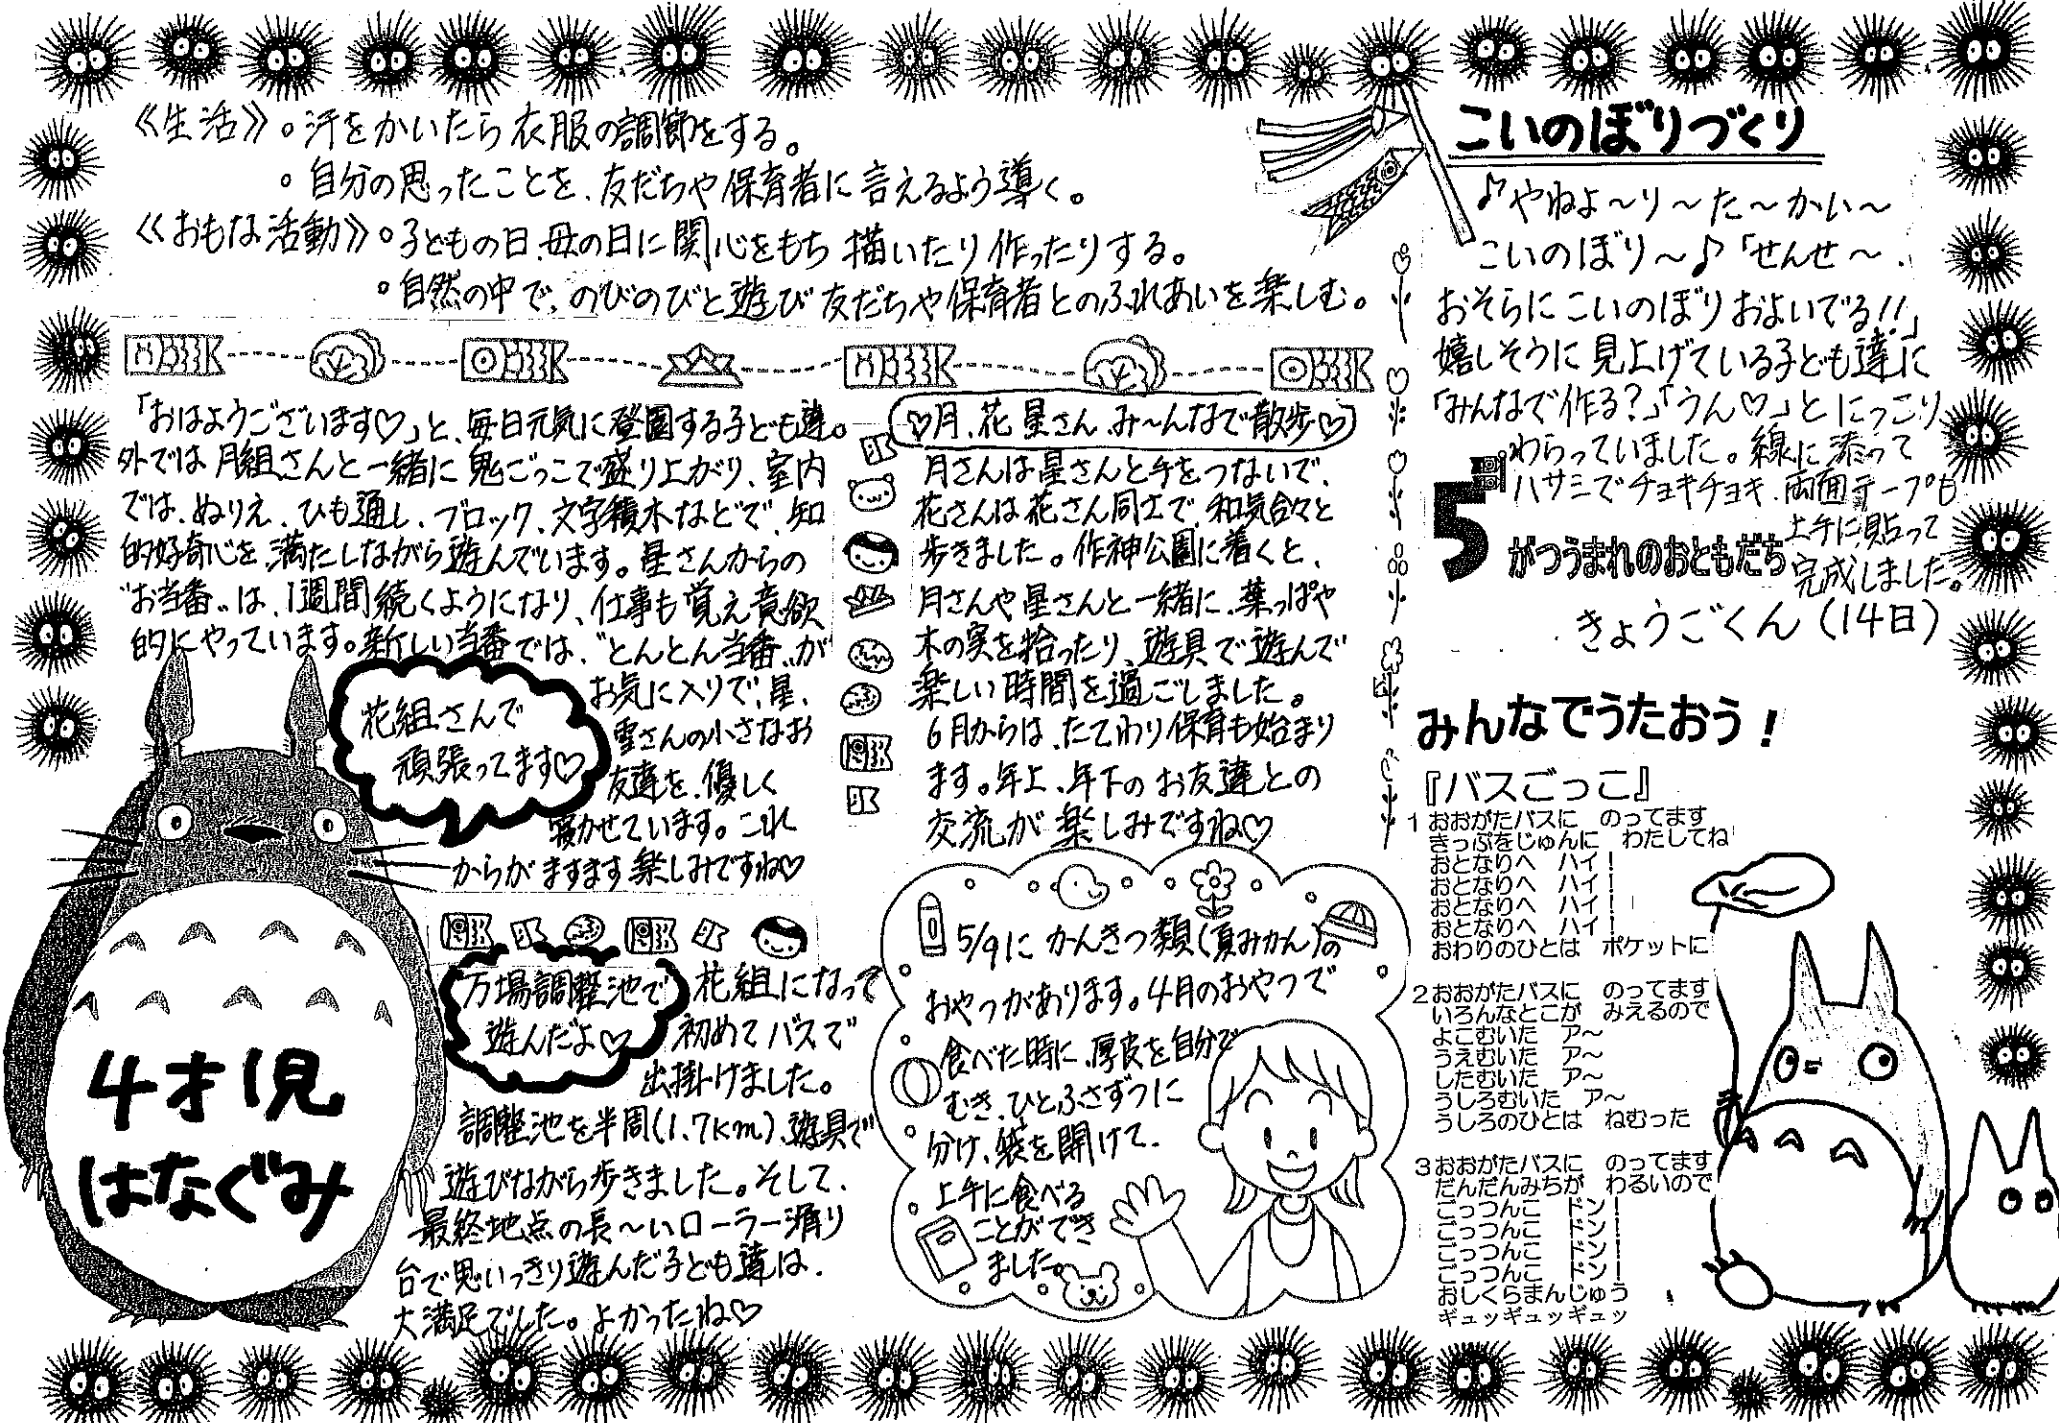 《生活》。汗をかいたら衣服の調節をする。
。自分の思ったことを、友だちや保育者に言えるよう導く。
《おもな活動》。子どもの日、母の日に関心をもち描いたり作ったりする。
。自然の中で、のびのびと遊び友だちや保育者とのふれあいを楽しむ。
「おはようございます♡」と、毎日元気に登園する子ども達。
外では月組さんと一緒に鬼ごっこで盛り上がり、室内
では、ぬりえ、ひも通し、ブロック、文字積木などで、知
的好奇心を満たしながら遊んでいます。星さんからの
“お当番”は、1週間続くようになり、仕事も覚え意欲
的にやっています。新しい当番では、“とんとん当番”が
お気に入りで、星、
雪さんの小さなお
友達を、優しく
寝かせています。これ
からがますます楽しみですね♡
花組さんで
頑張ってます♡
4才児
はなぐみ
万場調整池で
遊んだよ♡
花組になって
初めてバスで
出掛けました。
調整池を半周(1.7km)、遊具で
遊びながら歩きました。そして、
最終地点の長〜いローラー滑り
台で思いっきり遊んだ子ども達は、
大満足でした。よかったね♡
♡月、花、星さん み〜んなで散歩♡
月さんは星さんと手をつないで、
花さんは花さん同士で、和気合々と
歩きました。作神公園に着くと、
月さんや星さんと一緒に、葉っぱや
木の実を拾ったり、遊具で遊んで
楽しい時間を過ごしました。
6月からは、たてわり保育も始まり
ます。年上、年下のお友達との
交流が楽しみですね♡
5/9に かんきつ類(夏みかん)の
おやつがあります。4月のおやつで
食べた時に、厚皮を自分で
むき、ひとふさずつに
分け、袋を開けて、
上手に食べる
ことができ
ました。
こいのぼりづくり
♪やねよ〜り〜た〜かい〜
こいのぼり〜♪「せんせ〜、
おそらにこいのぼりおよいでる!!」
嬉しそうに見上げている子ども達に
「みんなで作る?」「うん♡」とにっこり
わらっていました。線に添って
ハサミでチョキチョキ、両面テープも
上手に貼って
完成しました。
5がつうまれのおともだち
きょうごくん(14日)
みんなでうたおう!
『バスごっこ』
1 おおがたバスに のってます
きっぷをじゅんに わたしてね
おとなりへ ハイ!
おとなりへ ハイ!
おとなりへ ハイ!
おとなりへ ハイ!
おわりのひとは ポケットに
2 おおがたバスに のってます
いろんなとこが みえるので
よこむいた ア〜
うえむいた ア〜
したむいた ア〜
うしろむいた ア〜
うしろのひとは ねむった
3 おおがたバスに のってます
だんだんみちが わるいので
ごっつんこ ドン!
ごっつんこ ドン!
ごっつんこ ドン!
ごっつんこ ドン!
おしくらまんじゅう
ギュッギュッギュッ